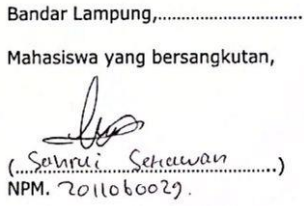 Bandar Lampung,................................
Mahasiswa yang bersangkutan,
(...Sahrui Setiawan..........)
NPM. 2011060029.